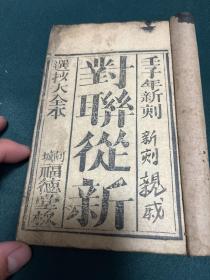 壬子年新刻
新刻 親戚
對聯從新
選按大全本
河城
福德堂梓